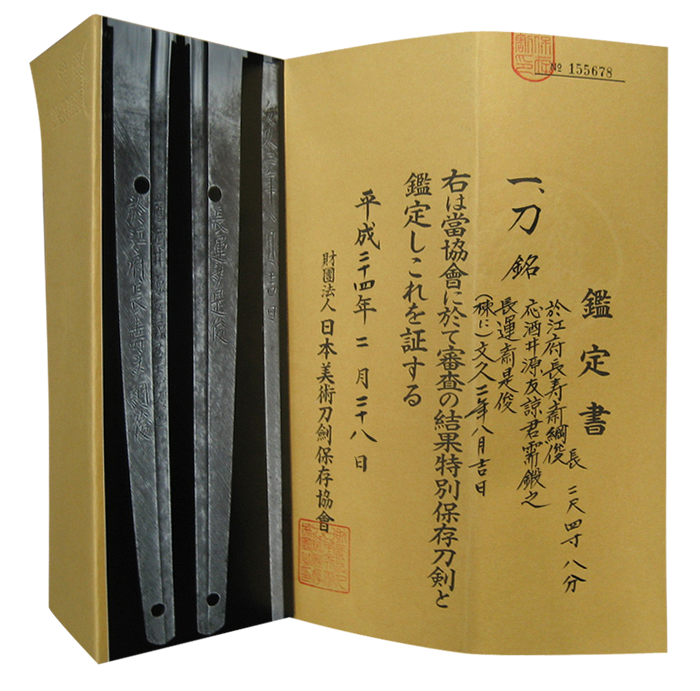 № 155678
鑑定書
一、刀 銘
於江府長寿斎綱俊
応酒井源友諒君需鍛之
長運斎是俊
(棟に)文久二年八月吉日
長 二尺四寸八分
右は當協會に於て審査の結果特別保存刀剣と
鑑定しこれを証する
平成二十四年二月二十八日
財團法人 日本美術刀劍保存協會
長運斎是俊
於江府長寿斎綱俊